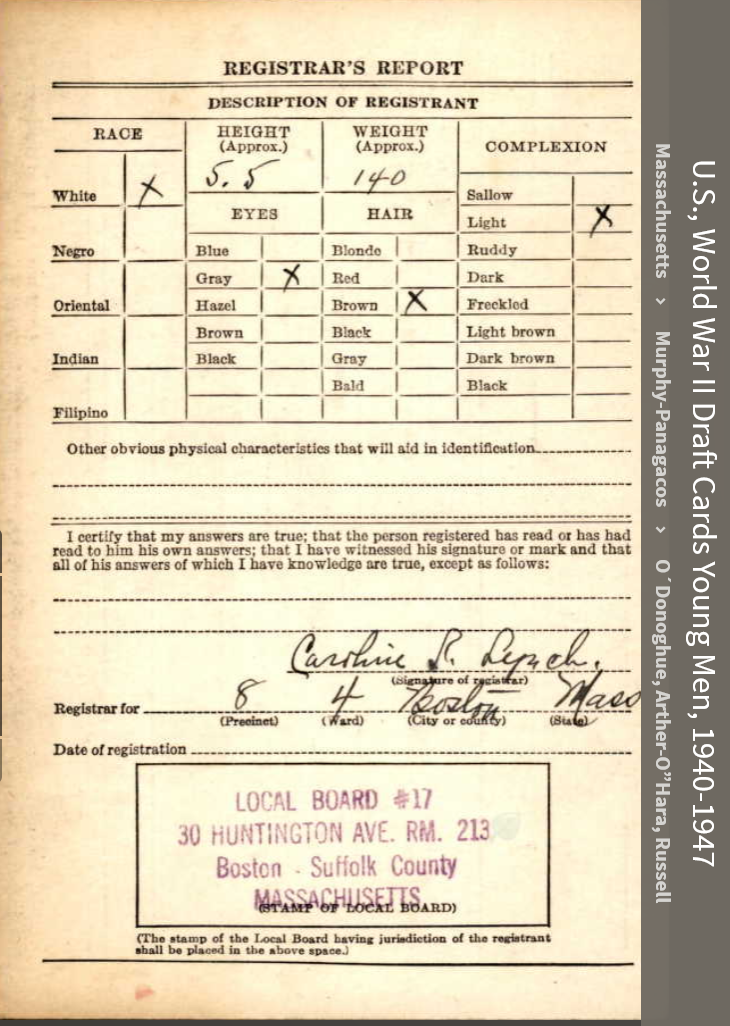 REGISTRAR'S REPORT
DESCRIPTION OF REGISTRANT
RACE
HEIGHT
(Approx.)
WEIGHT
(Approx.)
COMPLEXION
5. 5
140
White X
Sallow
EYES
HAIR
Light X
Negro
Blue
Blonde
Ruddy
Gray X
Red
Dark
Oriental
Hazel
Brown X
Freckled
Brown
Black
Light brown
Indian
Black
Gray
Dark brown
Bald
Black
Filipino
Other obvious physical characteristics that will aid in identification
I certify that my answers are true; that the person registered has read or has had
read to him his own answers; that I have witnessed his signature or mark and that
all of his answers of which I have knowledge are true, except as follows:
Caroline R. Lynch.
(Signature of registrar)
Registrar for 8 4 Boston Mass
(Precinct) (Ward) (City or county) (State)
Date of registration
LOCAL BOARD #17
30 HUNTINGTON AVE. RM. 213
Boston - Suffolk County
MASSACHUSETTS
(STAMP OF LOCAL BOARD)
(The stamp of the Local Board having jurisdiction of the registrant
shall be placed in the above space.)
U.S., World War II Draft Cards Young Men, 1940-1947
Massachusetts > Murphy-Panagacos > O´Donoghue, Arther-O”Hara, Russell